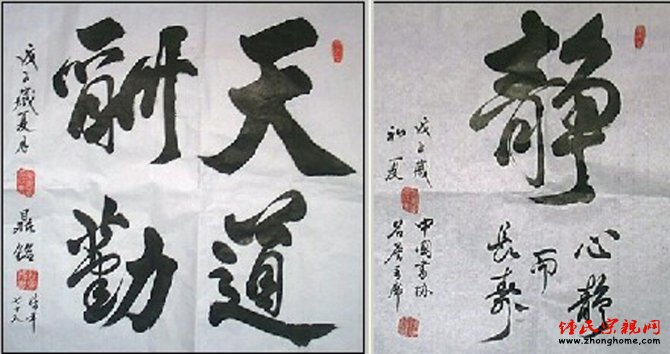 天道
酬勤
戊子歲夏月
鼎銘
時年
七十八
靜
心靜
而
長壽
戊子歲
初夏
中國書協
名譽主席
钟氏宗视网
www.zhonghome.com